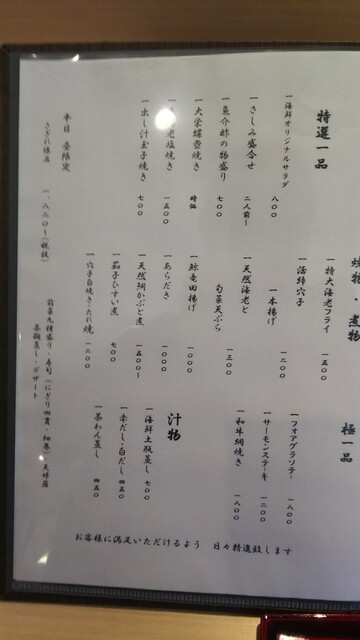 特選一品
一海鮮オリジナルサラダ 八〇〇
一さしみ盛合せ 二人前〜
一魚介酢の物盛り 七〇〇
一大栄螺壺焼き 時価
老塩焼き 一五〇〇
一出し汁玉子焼き 七〇〇
焼物・煮物
一特大海老フライ 一五〇〇
一活〆穴子一本揚げ 一二〇〇
一天然海老と旬菜天ぷら 一三〇〇
一鯨竜田揚げ 一〇〇〇
一あらだき 一〇〇〇
一天然鯛かぶと煮 一五〇〇〜
一茄子ひすい煮 七〇〇
一穴子白焼き・たれ焼 一二〇〇
極一品
一フォアグラソテー 一八〇〇
一サーモンステーキ 一二〇〇
一和牛網焼き 一八〇〇
汁物
一海鮮土瓶蒸し 七〇〇
一赤だし・白だし 四五〇
一茶わん蒸し 四五〇
平日 昼限定
さざれ様店 一、八二〇〜(税抜)
前菜九種盛り・寿司(にぎり四貫・細巻)天ぷら
茶碗蒸し・デザート
お客様に満足いただけるよう 日々精進致します